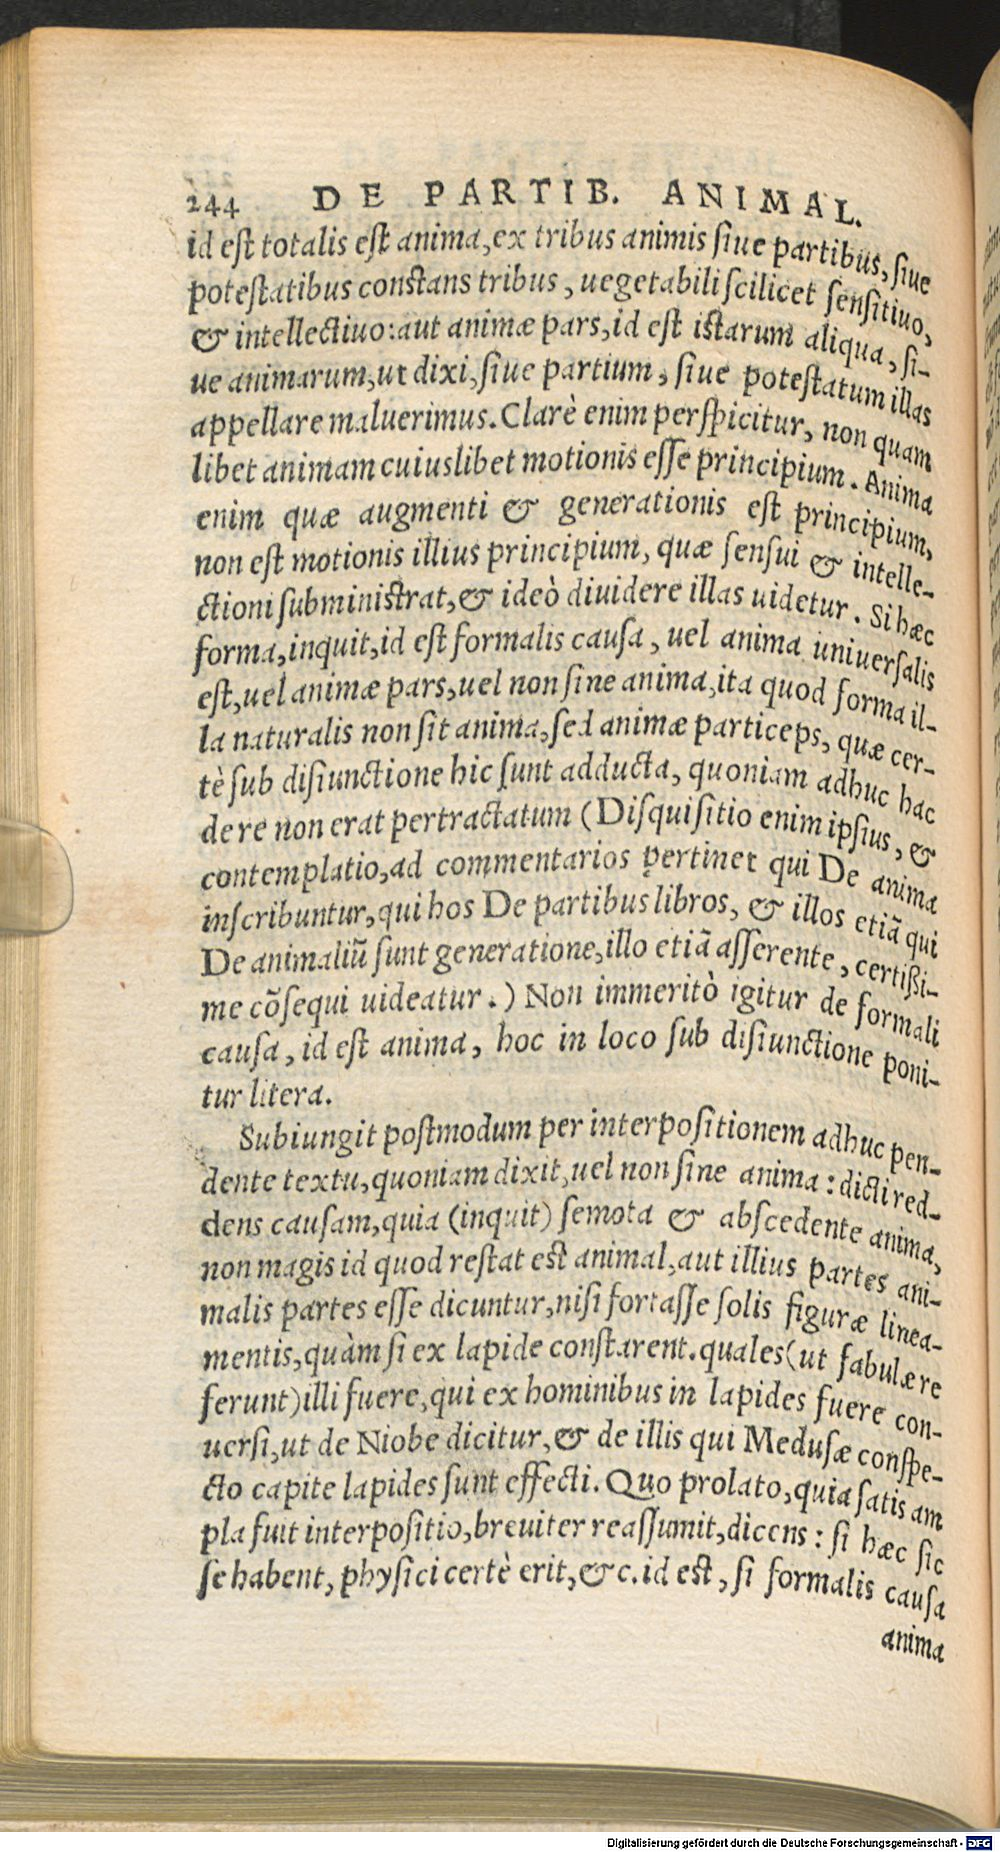 244 DE PARTIB. ANIMAL.
id eſt totalis eſt anima, ex tribus animis ſiue partibus, ſiue
poteſtatibus conſtans tribus, uegetabili ſcilicet ſenſitiuo,
& intellectiuo: aut animæ pars, id eſt iſtarum aliqua, ſi-
ue animarum, ut dixi, ſiue partium, ſiue poteſtatum illas
appellare maluerimus. Clarè enim perſpicitur, non quam
libet animam cuiuslibet motionis eſſe principium. Anima
enim quæ augmenti & generationis eſt principium,
non eſt motionis illius principium, quæ ſenſui & intelle-
ctioni ſubminiſtrat, & ideò diuidere illas uidetur. Si hæc
forma, inquit, id eſt formalis cauſa, uel anima uniuerſalis
eſt, uel animæ pars, uel non ſine anima, ita quod forma il-
la naturalis non ſit anima, ſed animæ particeps, quæ cer-
tè ſub diſiunctione hic ſunt adducta, quoniam adhuc hac
de re non erat pertractatum (Diſquiſitio enim ipſius, &
contemplatio, ad commentarios pertinet qui De anima
inſcribuntur, qui hos De partibus libros, & illos etiã qui
De animaliũ ſunt generatione, illo etiã aſſerente, certißi-
me cõſequi uideatur.) Non immeritò igitur de formali
cauſa, id eſt anima, hoc in loco ſub diſiunctione poni-
tur litera.
Subiungit poſtmodum per interpoſitionem adhuc pen-
dente textu, quoniam dixit, uel non ſine anima: dicti red-
dens cauſam, quia (inquit) ſemota & abſcedente anima,
non magis id quod reſtat eſt animal, aut illius partes ani-
malis partes eſſe dicuntur, niſi fortaſſe ſolis figuræ linea-
mentis, quàm ſi ex lapide conſtarent. quales (ut fabulæ re
ferunt) illi fuere, qui ex hominibus in lapides fuere con-
uerſi, ut de Niobe dicitur, & de illis qui Meduſæ conſpe-
cto capite lapides ſunt effecti. Quo prolato, quia ſatis am
pla fuit interpoſitio, breuiter reaſſumit, dicens: ſi hæc ſic
ſe habent, phyſici certè erit, &c. id eſt, ſi formalis cauſa
anima
Digitalisierung gefördert durch die Deutsche Forschungsgemeinschaft - DFG